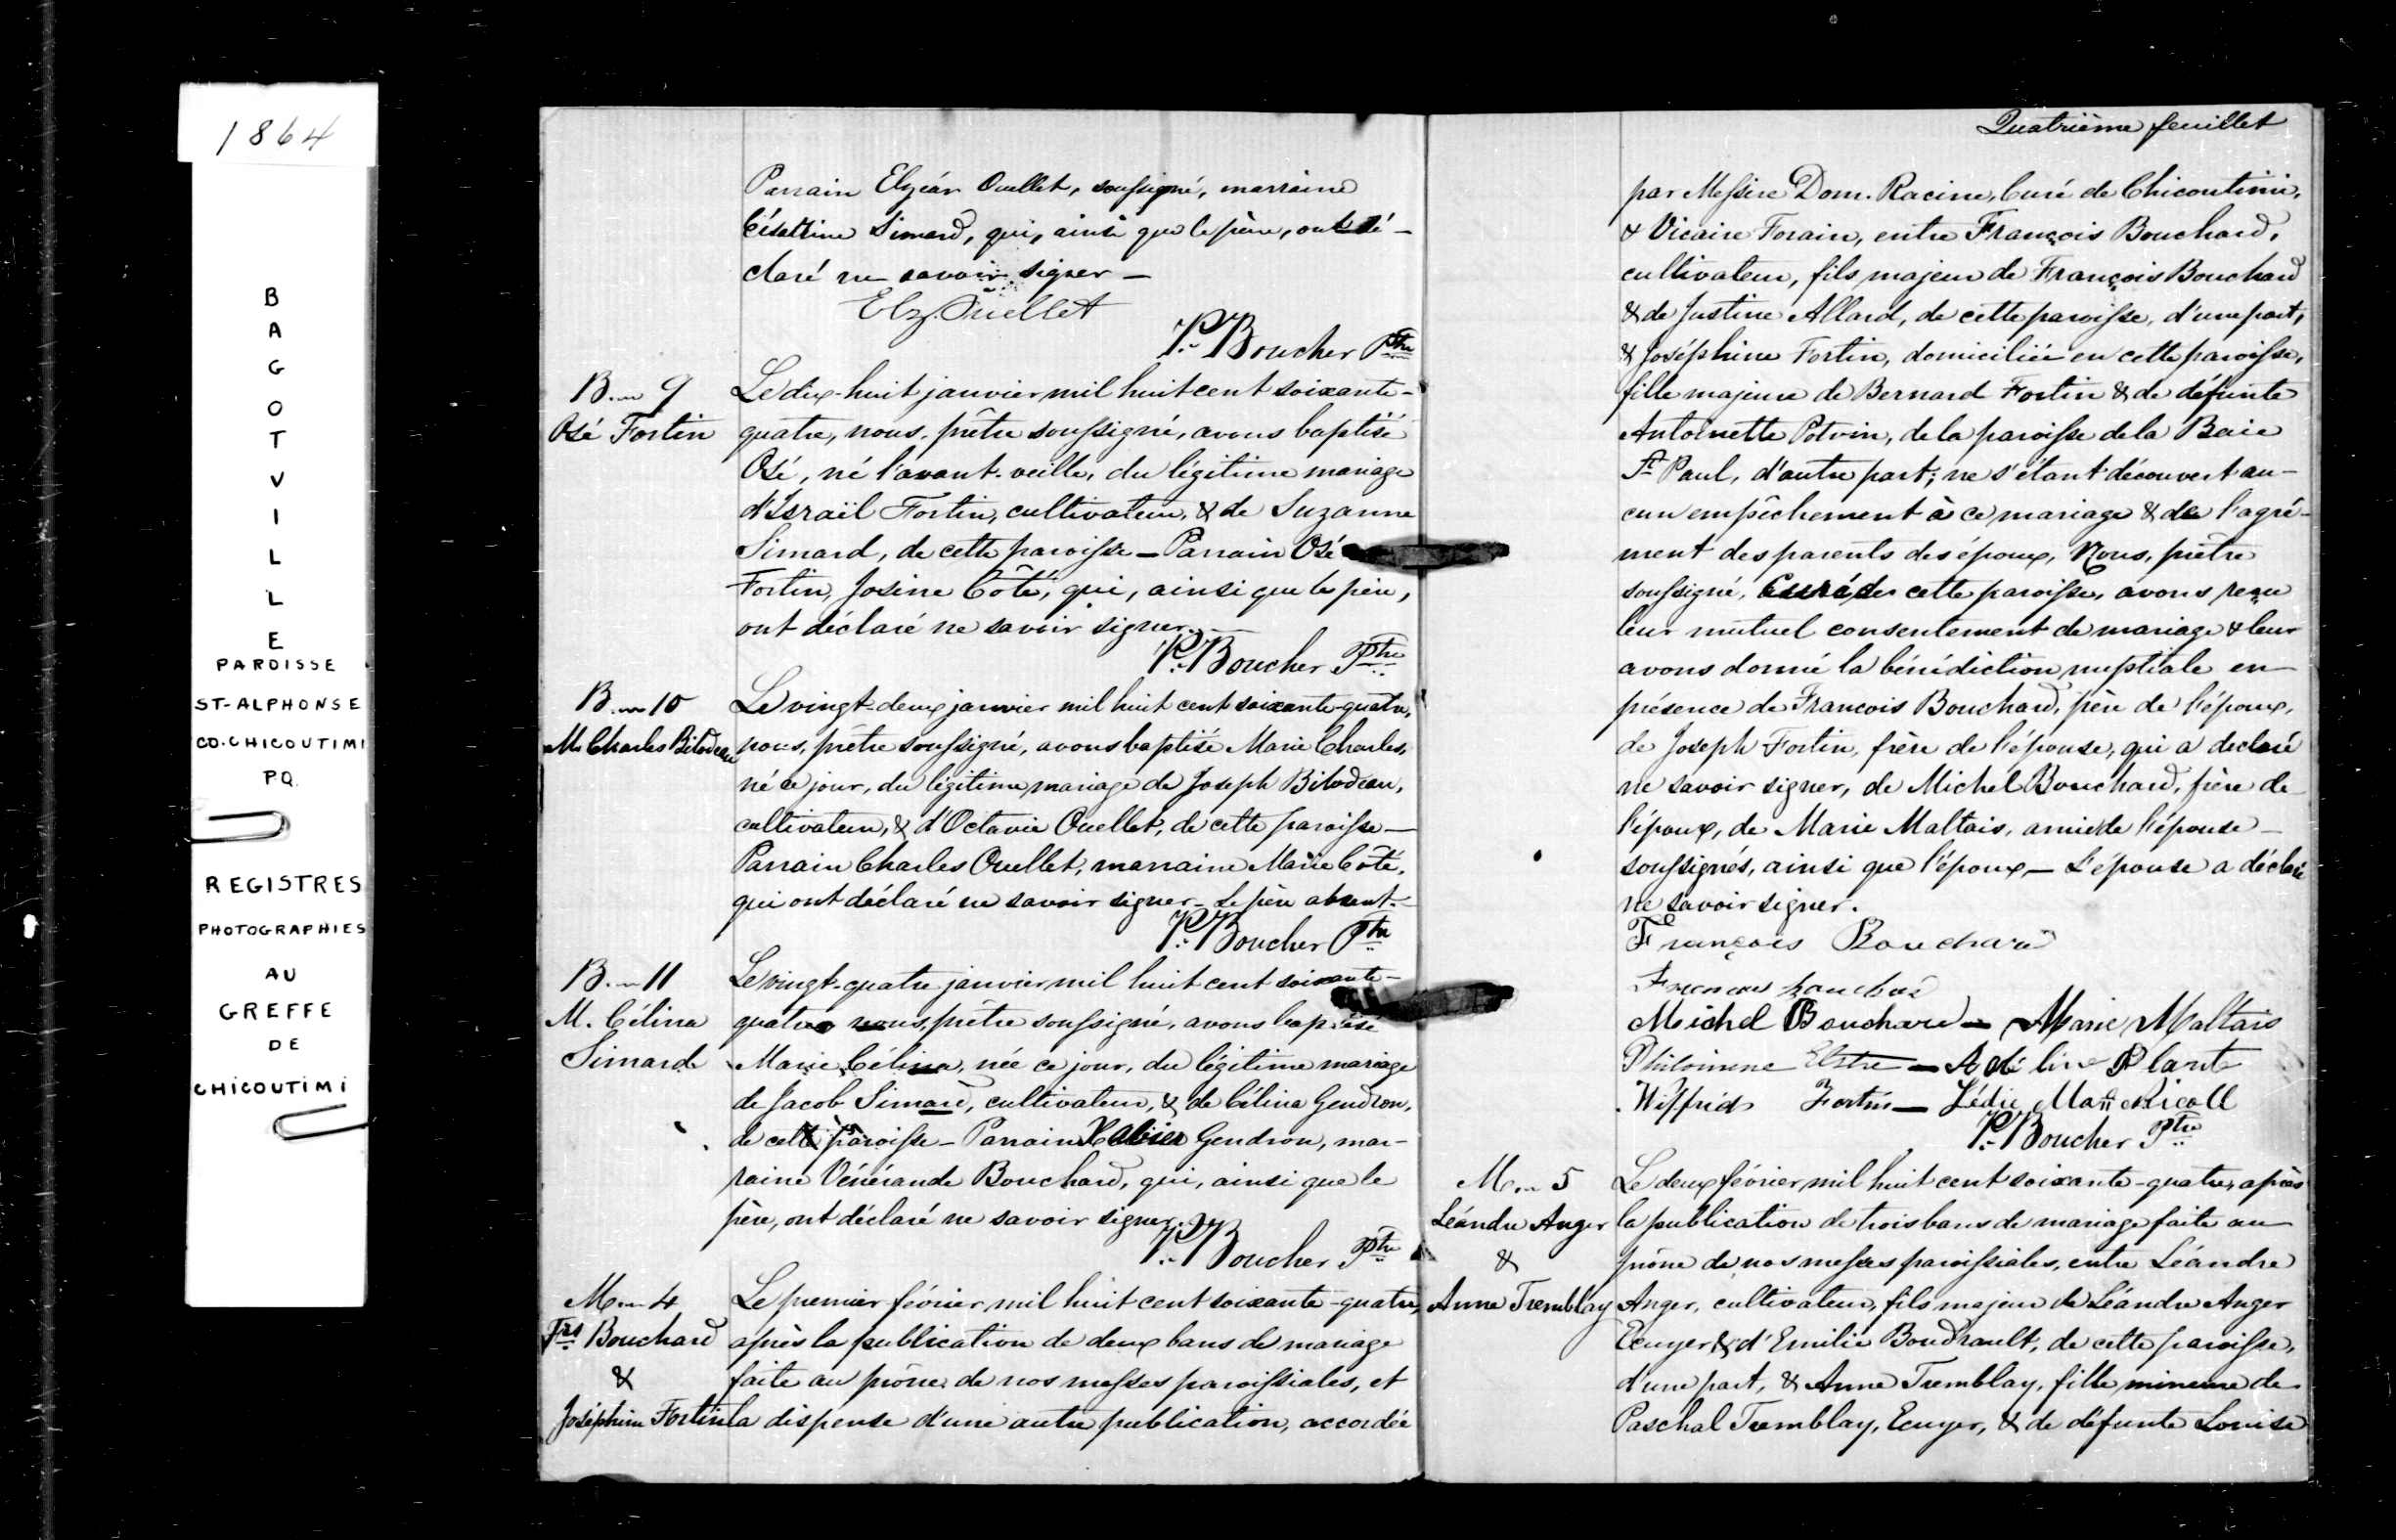 1864
BAGOTVILLE
PAROISSE
ST-ALPHONSE
CO. CHICOUTIMI
PQ.
REGISTRES
PHOTOGRAPHIES
AU
GREFFE
DE
CHICOUTIMI
Parrain Elzéar Ouellet, soussigné, marraine
Simard, qui, ainsi que le père, ont dé-
claré ne savoir signer —
Elz. Ouellet
P. Boucher Ptre
B. 9
Osé Fortin
Le dix-huit janvier mil huit cent soixante-
quatre, nous, prêtre soussigné, avons baptisé
Osé, né l'avant-veille, du légitime mariage
d'Israïl Fortin, cultivateur, & de Suzanne
Simard, de cette paroisse — Parrain Osé
Fortin, Josine Côté, qui, ainsi que le père,
ont déclaré ne savoir signer. —
P. Boucher Ptre
B. 10
M. Charles Bilodeau
Le vingt-deux janvier mil huit cent soixante-quatre,
nous, prêtre soussigné, avons baptisé Marie Charles,
né ce jour, du légitime mariage de Joseph Bilodeau,
cultivateur, & d'Octavie Ouellet, de cette paroisse —
Parrain Charles Ouellet, marraine Marie Côté,
qui ont déclaré ne savoir signer — Le père absent. —
P. Boucher Ptre
B. 11
M. Célina
Simard
Le vingt-quatre janvier mil huit cent soixante-
quatre nous, prêtre soussigné, avons baptisé
Marie Célina, née ce jour, du légitime mariage
de Jacob Simard, cultivateur, & de Célina Gendron,
de cette paroisse — Parrain Xabier Gendron, mar-
raine Vénérande Bouchard, qui, ainsi que le
père, ont déclaré ne savoir signer.
P. Boucher Ptre
M. 4
Frs Bouchard
&
Joséphine Fortin
Le premier février mil huit cent soixante-quatre,
après la publication de deux bans de mariage
faite au prône de nos messes paroissiales, et
la dispense d'une autre publication, accordée
Quatrième feuillet
par Messire Dom. Racine, Curé de Chicoutimi,
& Vicaire Forain, entre François Bouchard,
cultivateur, fils majeur de François Bouchard
& de Justine Allard, de cette paroisse, d'une part,
& Joséphine Fortin, domiciliée en cette paroisse,
fille majeure de Bernard Fortin & de défunte
Antoinette Potvin, de la paroisse de la Baie
St Paul, d'autre part; ne s'étant découvert au-
cun empêchement à ce mariage & de l'agré-
ment des parents des époux, Nous, prêtre
soussigné, Curé de cette paroisse, avons reçu
leur mutuel consentement de mariage & leur
avons donné la bénédiction nuptiale en
présence de Francois Bouchard, père de l'époux,
de Joseph Fortin, frère de l'épouse, qui a declaré
ne savoir signer, de Michel Bouchard, frère de
l'époux, de Marie Maltais, amie de l'épouse —
soussignés, ainsi que l'époux — L'épouse a déclaré
ne savoir signer.
François Bouchard
Michel Bouchard — Marie Maltais
Philomene — Adéline Plante
Wilfrid Fortin — Lédie
P. Boucher Ptre
M. 5
Léandre Anger
&
Anne Tremblay
Le deux février mil huit cent soixante-quatre, après
la publication de trois bans de mariage faite au
prône de nos messes paroissiales, entre Léandre
Anger, cultivateur, fils majeur de Léandre Anger
Ecuyer & d'Emilie Boudrault, de cette paroisse,
d'une part, & Anne Tremblay, fille mineure de
Paschal Tremblay, Ecuyer, & de défunte Louise